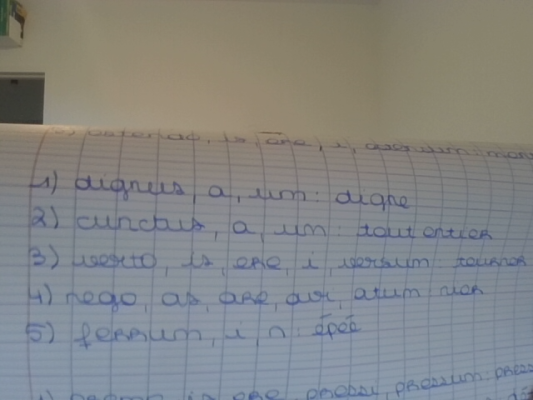 is, ere, i,
1) dignus, a, um: digne
2) cunctus, a, um: tout entier
3) verto, is, ere, i, versum: tourner
4) nego, as, are, avi, atum nier
5) ferrum, i, n: épée
is ere pressi, pressum: